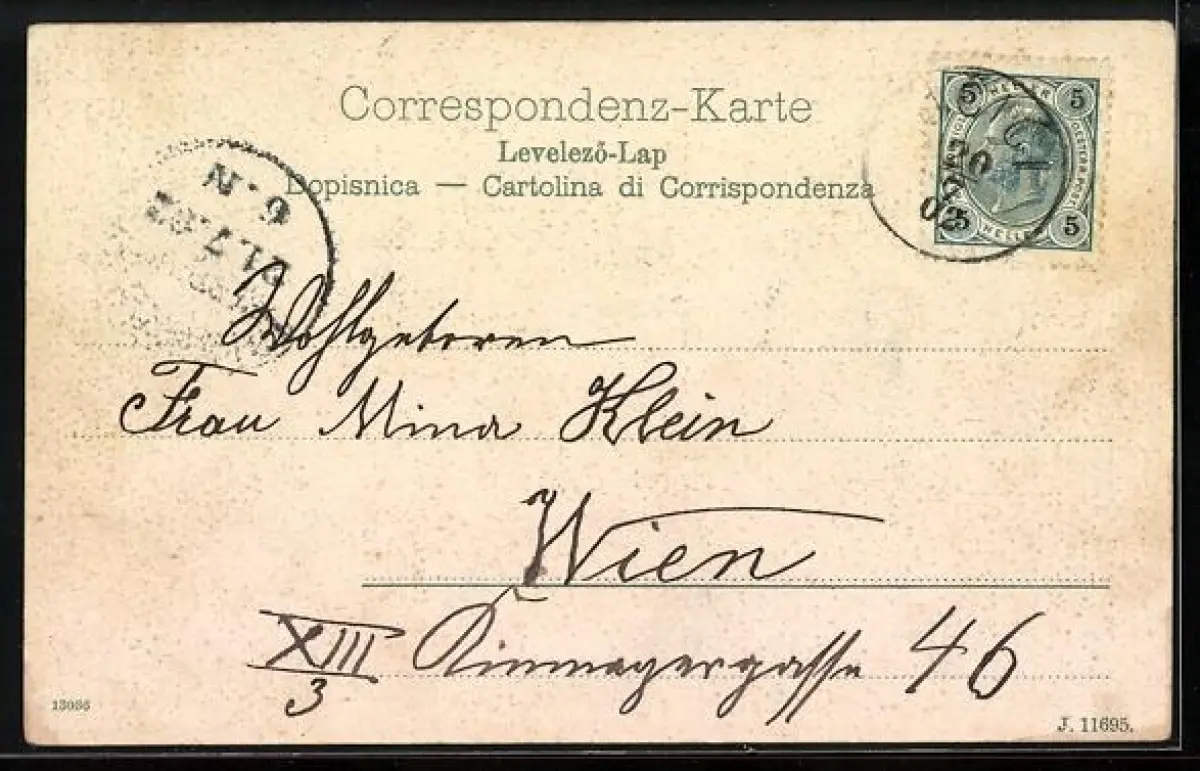 Correspondenz-Karte
Levelező-Lap
Dopisnica — Cartolina di Corrispondenza
5 HELLER 5
5 HELLER 5
20
02
6.N
Wohlgeboren
Frau Mina Klein
Wien
XIII
3
46
13086
J. 11695.